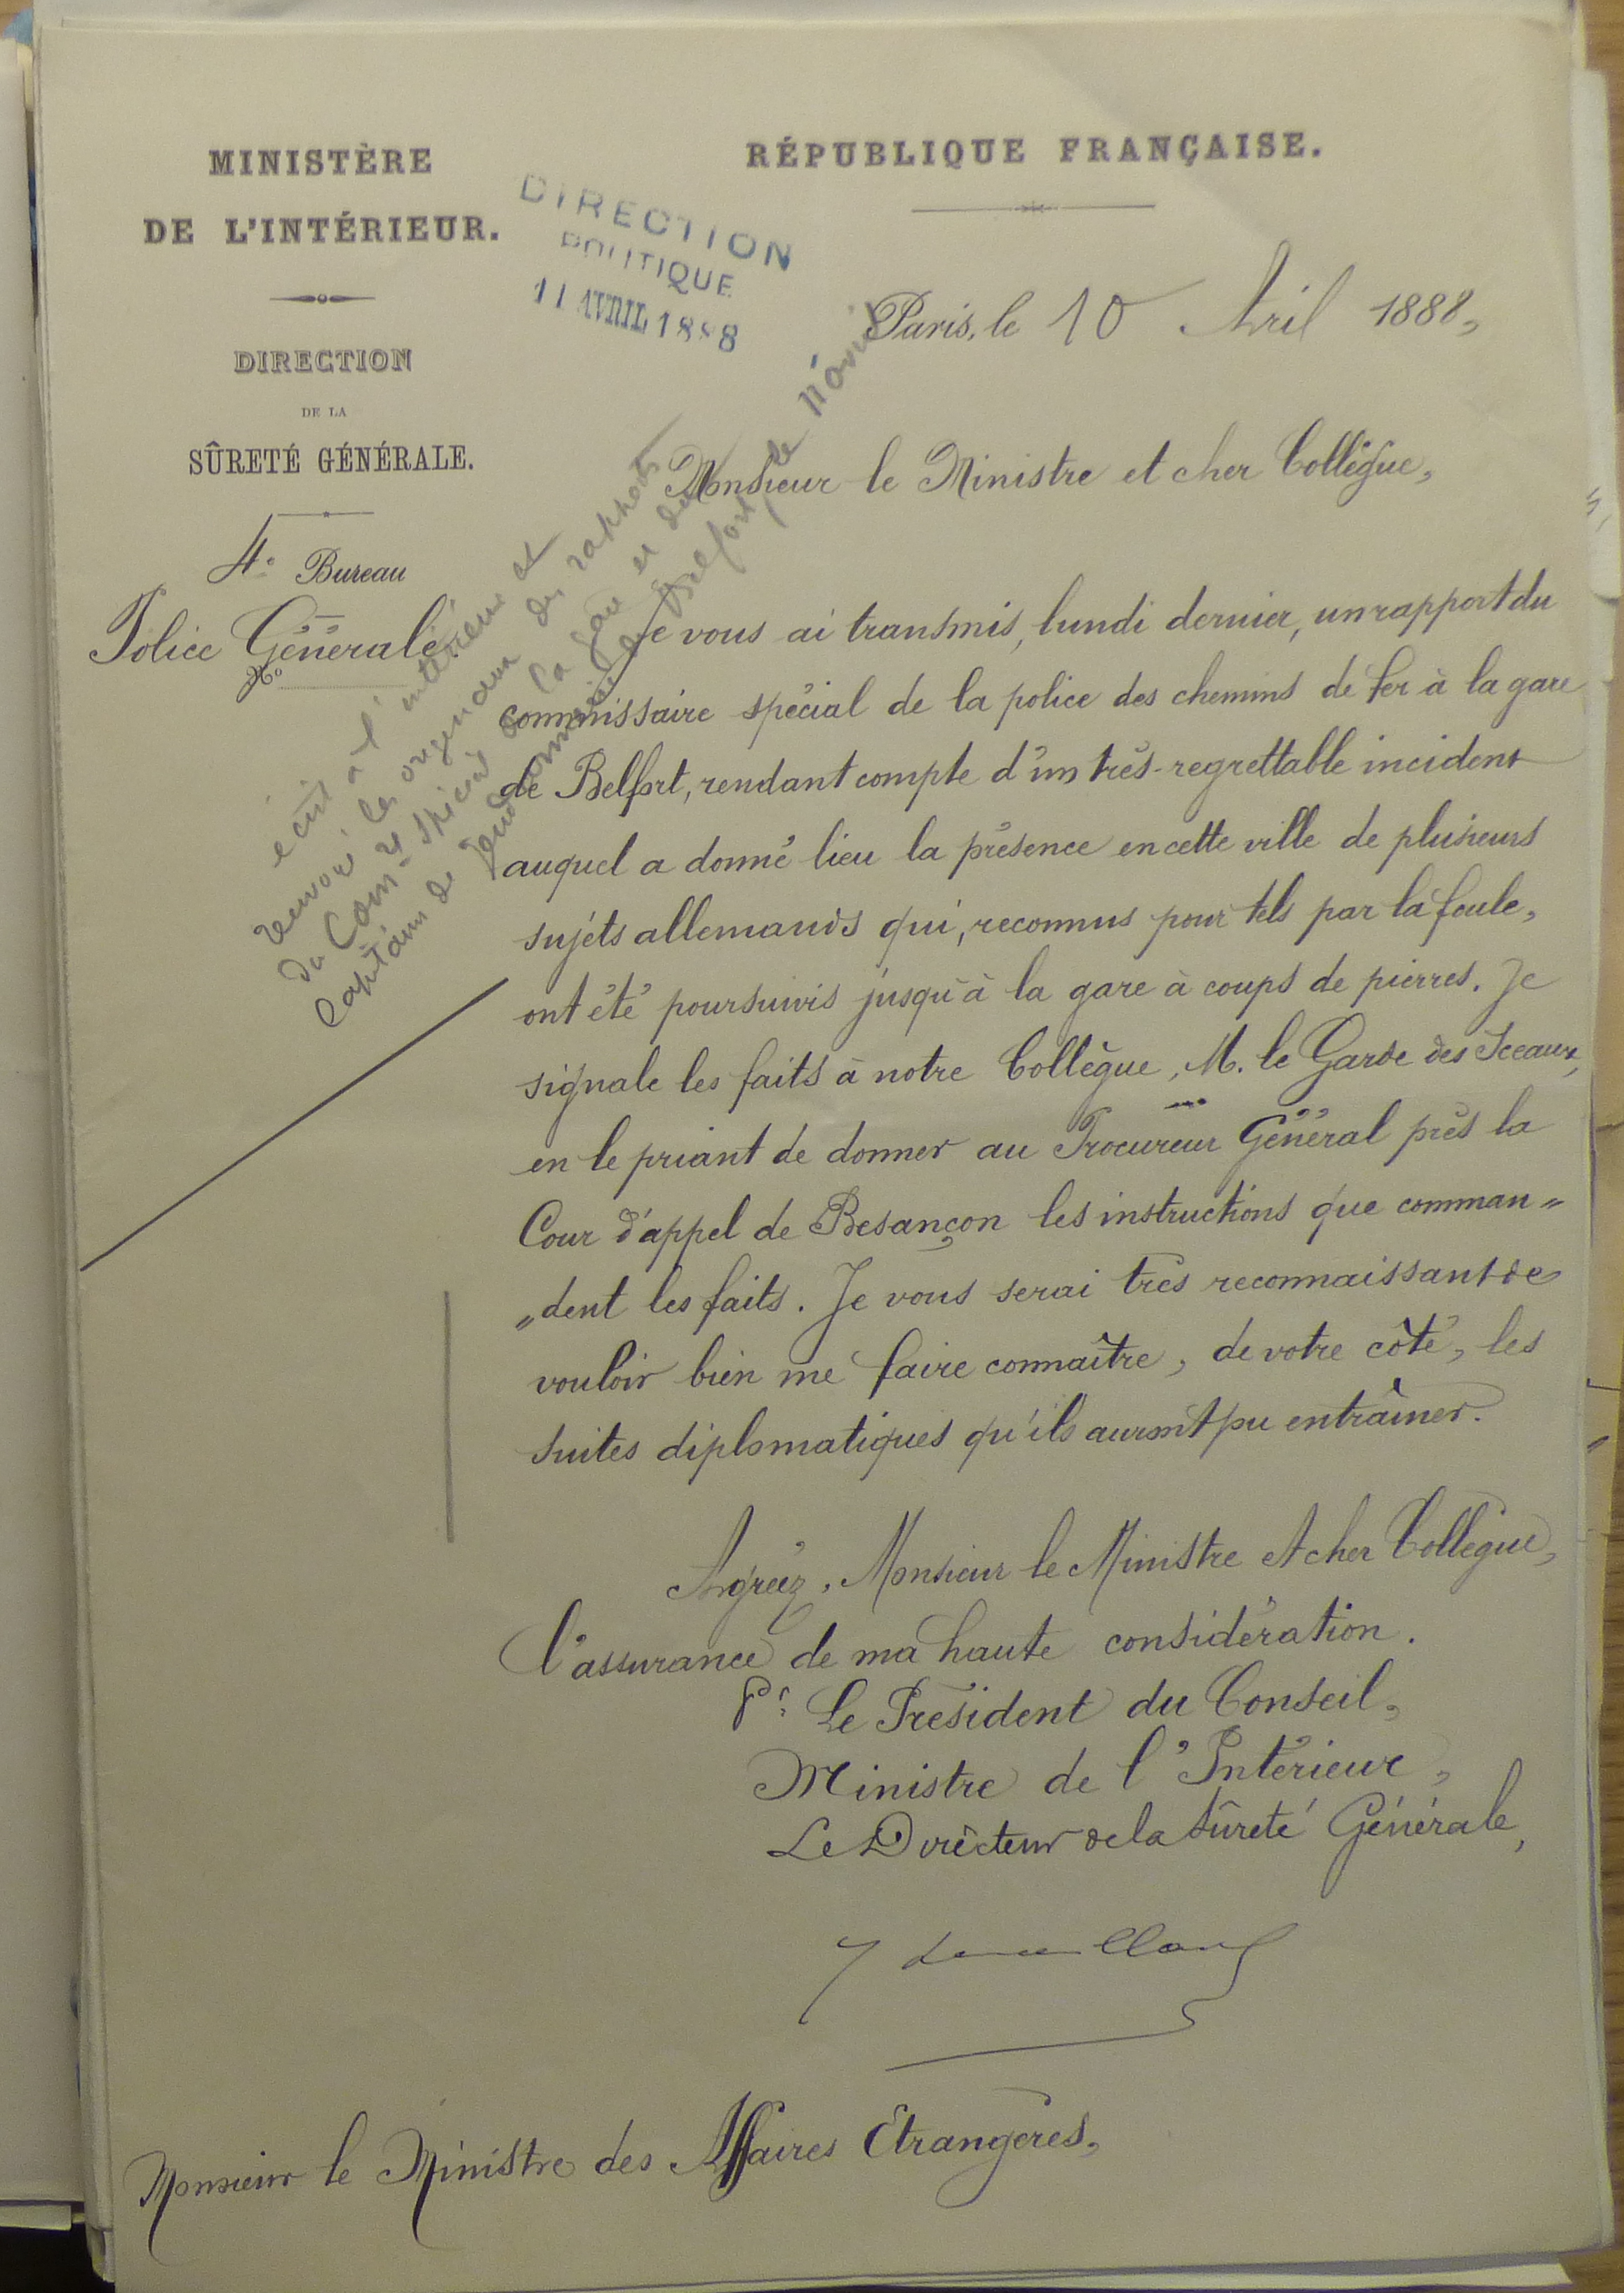 MINISTÈRE
DE L'INTÉRIEUR.
DIRECTION
DE LA
SÛRETÉ GÉNÉRALE.
4e Bureau
Police Générale
No
RÉPUBLIQUE FRANÇAISE.
DIRECTION
POLITIQUE
11 AVRIL 1888
Paris, le 10 Avril 1888,
écrit à l'intérieur et
renvoyé les originaux des rapports
du Comre spécial de la gare et du
Capitaine de gendarmerie de Belfort le 11 avril
Monsieur le Ministre et cher Collègue,
Je vous ai transmis, lundi dernier, un rapport du
commissaire spécial de la police des chemins de fer à la gare
de Belfort, rendant compte d'un très-regrettable incident
auquel a donné lieu la présence en cette ville de plusieurs
sujets allemands qui, reconnus pour tels par la foule,
ont été poursuivis jusqu'à la gare à coups de pierres. Je
signale les faits à notre Collègue, M. le Garde des Sceaux,
en le priant de donner au Procureur Général près la
Cour d'appel de Besançon les instructions que comman=
=dent les faits. Je vous serai très reconnaissant de
vouloir bien me faire connaître, de votre côté, les
suites diplomatiques qu'ils auront pu entraîner.
Agréez, Monsieur le Ministre et cher Collègue,
l'assurance de ma haute considération.
Pr Le Président du Conseil,
Ministre de l'Intérieur,
Le Directeur de la Sûreté Générale,
Monsieur le Ministre des Affaires Etrangères,